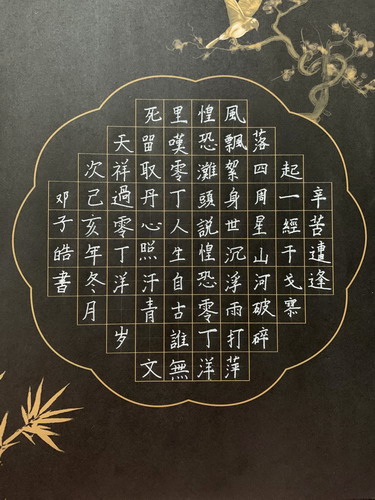 辛苦遭逢
起一經干戈寥
落四周星山河破碎
風飄絮身世沉浮雨打萍
惶恐灘頭説惶恐零丁洋
里嘆零丁人生自古誰無
死留取丹心照汗青 文
天祥過零丁洋 岁
次己亥年冬月
邓子皓書